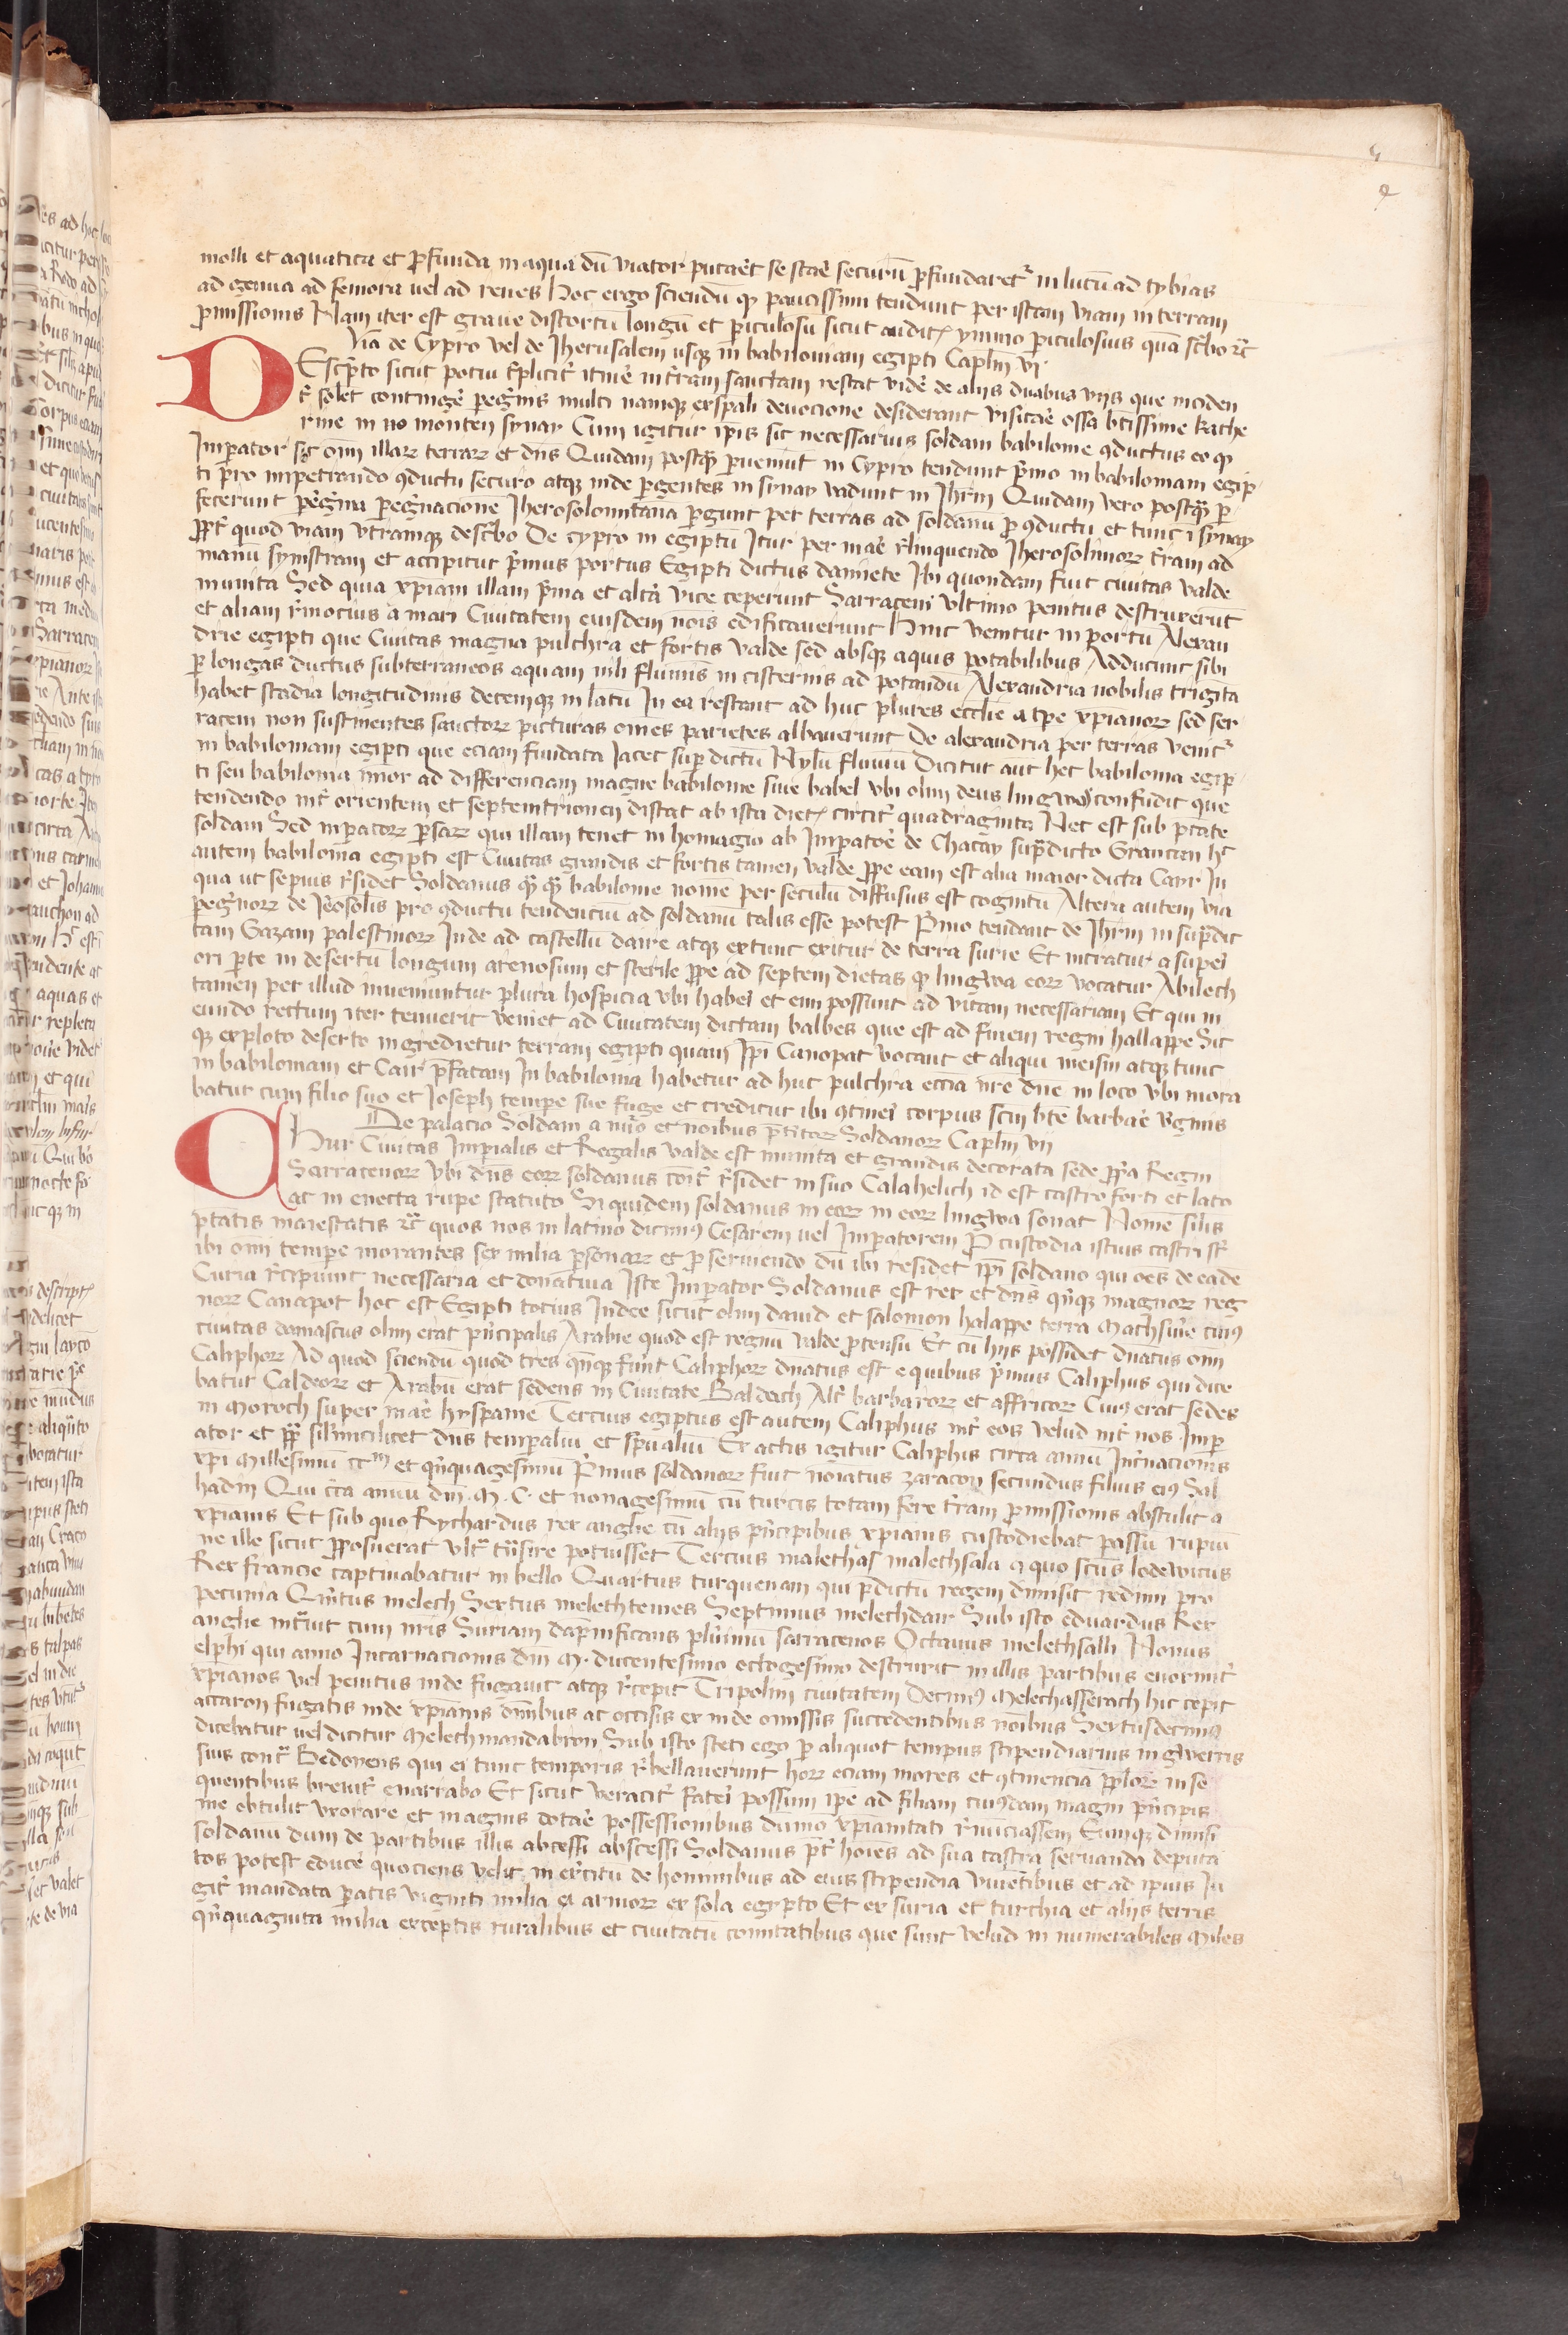 molli et aquatica et ꝓfunda in aqua dū viator putaēt se staē securū ꝓfundaretr in lutū ad tybias
ad genua ad femora vel ad renes Hoc ergo sciendū qꝫ paucissimi tendunt per istam viam in terram
ꝓmissionis Nam iter est graue distortū longū et ꝑiculosū sicut auditꝫ ymmo ꝑiculosius quā sc̄bo ꝛc̄
Via de Cypro vel de Jherusalem usqꝫ in babiloniam egipti Caplm̄ vi
DEscp̄to sicut potui sīplicit̄ itinē in tr̄am sanctam restat videē de alijs duabus vijs que inciden
t̄ solet contingē ꝑegr̄nis multi namqꝫ ex spāli deuocione desiderant visitaē ossa btīssime kathe
rine in mo monten synay Cum igitur ipīs sic necessarius soldani babilonie ꝯductus eo qꝫ
Imꝑator sit om̄i illaꝝ terraꝝ et dn̄s Quidam postqꝫ ꝑueniūt in Cypro tendunt p̄mo in babiloniam egip
ti pro impetrando ꝯductu securo atqꝫ inde ꝑgentes in synay vadunt in Jhrlm̄ Quidam vero postqꝫ ꝑ
fecerunt ꝑegr̄nā ꝑegr̄nacionē Jherosolomitana ꝑgunt per terras ad soldanū ꝓ ꝯductu et tunc ī synay
ꝓpt̄ quod viam vtramqꝫ describo De cypro in egiptū Itur per maē r̄linquendo Jherosolimoꝝ tr̄am ad
manū synistram et accipitur p̄mus portus Egipti dictus damiete Ibi quondam fuit ciuitas valde
munita Sed quia xpiani illam p̄ma et altā vice ceperunt Sarraceni vltimo penitus destruxerūt
et aliam r̄mocius a mari Ciuitatem eiusdem nōis edificauerunt Hinc venitur in portū Alexan
drie egipti que Ciuitas magna pulchra et fortis valde sed absqꝫ aquis potabilibus Adducunt sibi
ꝑ longas ductus subterraneos aquam nili fluminis in cisternis ad potandū Alexandria nobilis trigīta
habet stadia longitudinis decemqꝫ in latū In ea restant ad huc plures ecclīe a tpe xpianoꝝ sed ser
raceni non sustinentes sanctoꝝ picturas omēs parietes albauerunt De alexandria per terras venitr
in babiloniam egipti que eciam fundata Jacet suꝑ dictū Nylū fluuiū Dicitur aūt hec babilonia egip
ti seu babilonia mīor ad differenciam magne babilonie siue babel vbi olim deus lingwas confudit que
tendendo int̄ orientem et septemtrionen distat ab ista dietꝫ circit̄ quadraginta Nec est sub ptāte
soldani Sed imꝑatoꝝ ꝑsaꝝ qui illam tenet in homagio ab Imꝑatoē de Chatay sup̄dicto Grancan hc
autem babilonia egipti est Ciuitas grandis et fortis tamen valde ꝓpe eam est alia maior dicta Cayr In
qua ut sepius r̄sidet Soldanus qꝫ qꝫ babilonie nomē per seculū diffusius est cognitū Altera autem via
ꝑegr̄noꝝ de Jerosolis pro ꝯductu tendenciū ad soldanū talis esse potest P̄mo tendant de Jhrlm̄ in sup̄dic
tam Gazam palestinoꝝ Inde ad castellū daire atqꝫ extunc exitur de terra surie Et intratur a supei
ori ꝑte in desertū longum arenosum et sterile ꝓpe ad septem dietas qꝫ lingwa eoꝝ vocatur Abilech
tamen per illud inueniuntur plura hospicia vbi habei et emi possunt ad vitam necessariam Et qui in
eundo rectum iter tenuerit veniet ad Ciuitatem dictam balbes que est ad finem regni hallappe Sic
qꝫ exploto deserto ingredietur terram egipti quam Ipī Canopat vocant et aliqui meisin atqꝫ tunc
in babiloniam et Cair p̄fatam In babilonia habetur ad huc pulchra ecc̄ia nr̄e dn̄e in loco vbi mora
batur cum filio suo et Joseph tempe sue fuge et creditur ibi ꝯtinei corpus sc̄m btē barbaē v̄ginis
De palacio Soldani a nūo et noībus p̄titoꝝ Soldanoꝝ Caplm̄ vij
CHur Ciuitas Imꝑialis et Regalis valde est munita et grandis decorata sede ꝓp̄a Regni
Sarracenoꝝ vbi dn̄s eoꝝ soldanus cōit̄ r̄sidet in suo Calahelich id est castro forti et lato
ac in erecta rupe statuto Si quidem soldanus in eoꝝ in eoꝝ lingwa sonat Nomē silīs
ptātis maiestatis ꝛc̄ quos nos in latino dicimꝯ Cesarem vel Imꝑatorem P̄ custodia istius castri st̄
ibi om̄i tempe morantes sex milia ꝑsonaꝝ et ꝓ seruiendo dū ibi residet ipī soldano qui oēs de eadē
Curia r̄cipiunt necessaria et donatiua Iste Imꝑator Soldanus est rex et dn̄s q̄nqꝫ magnoꝝ reg
noꝝ Canapot hoc est Egipti tocius Indee sicut olim dauid et salomon halappe terra Mathsine cuiꝯ
ciuitas damascus olim erat p̄ncipalis Arabie quod est regnū valde ꝓtensū Et cū hijs possidet dnatus om̄i
Caliphoꝝ Ad quod sciendū quod tres q̄nqꝫ fūnt Caliphoꝝ dnatus est e quibus p̄mus Caliphus qui dice
batur Caldeoꝝ et Arabū erat sedens in Ciuitate Baldach Alt̄ barbaroꝝ et affricoꝝ Cuiꝯ erat sedes
in Moroch super maē hyspanie Tercius egiptus est autem Caliphus int̄ eos velud int̄ nos Imꝑ
ator et ꝓp silī mcilicet dn̄s temꝑaliū et spūaliū Ex actis igitur Caliphis circa annū Incr̄nacionis
xpi Millesimū ccm et q̄nquagesimū P̄mus soldanoꝝ fuit noīatus zaracon secundus filius eiꝯ Sal
hadin Qui cīta annū dn̄i M C et nonagesimū cū turcis totam fere tr̄am ꝓmissionis abstulit a
xpianis Et sub quo Rychardus rex anglie cū alijs p̄ncipibus xpianis custodiebat passū rupiū
ne ille sicut ꝓposuerat vlt̄ tn̄sire potuisset Tercius malethas malethsala a quo sc̄us lodewicus
Rex francie captiuabatur in bello Quartus turquenam qui p̄dictū regem dimisit redimi pro
pecunia Quītus melech Sextus melethtemes Septimus melechdair Sub isto Eduardus Rex
anglie intrauit cum nr̄is Suriam dapnificans plurimū sarracenos Octauus melethsalli Nonus
elphi qui anno Incarnacionis dn̄i M. ducentesimo octogesimo destruxit in illis partibus enormit̄
xpianos vel penitus inde fugauit atqꝫ r̄cepit Tripolim ciuitatem Decimꝯ Melechasserach hic cepit
accaron fugatis inde xpianis om̄ibus ac occisis ex inde omissis succedentibus noībus Sextusdecimꝯ
dicebatur vel dicitur Melechmandabron Sub isto steti ego ꝑ aliquot tempus stipendiarius in gwerris
suis cont̄ Bedoyens qui ei tunc temporis r̄bellauerunt hoꝝ eciam mores et ꝯtinenciā ꝓploꝝ in se
quentibus breuit̄ enarrabo Et sicut veracit̄ fatei possum ipē ad filiam cuiꝯdam magni p̄ncipis
me obtulit vxorare et magnis dotaē possessionibus dummo xpianitati r̄nuciassem Eumqꝫ dimisi
soldanū dum de partibus illis abcessi abscessi Soldanus pt̄ hoīes ad sua castra seruanda deputa
tos potest educē quociens velit in excitū de hominibus ad eius stipendia viuentibus et ad ipius Iu
git̄ mandata paratis viginti milia et armoꝝ ex sola egipto Et ex suria et turchia et alijs terris
q̄nquaginta milia exceptis ruralibus et ciuitatū comitatibus que sunt velud in numerabiles Miles